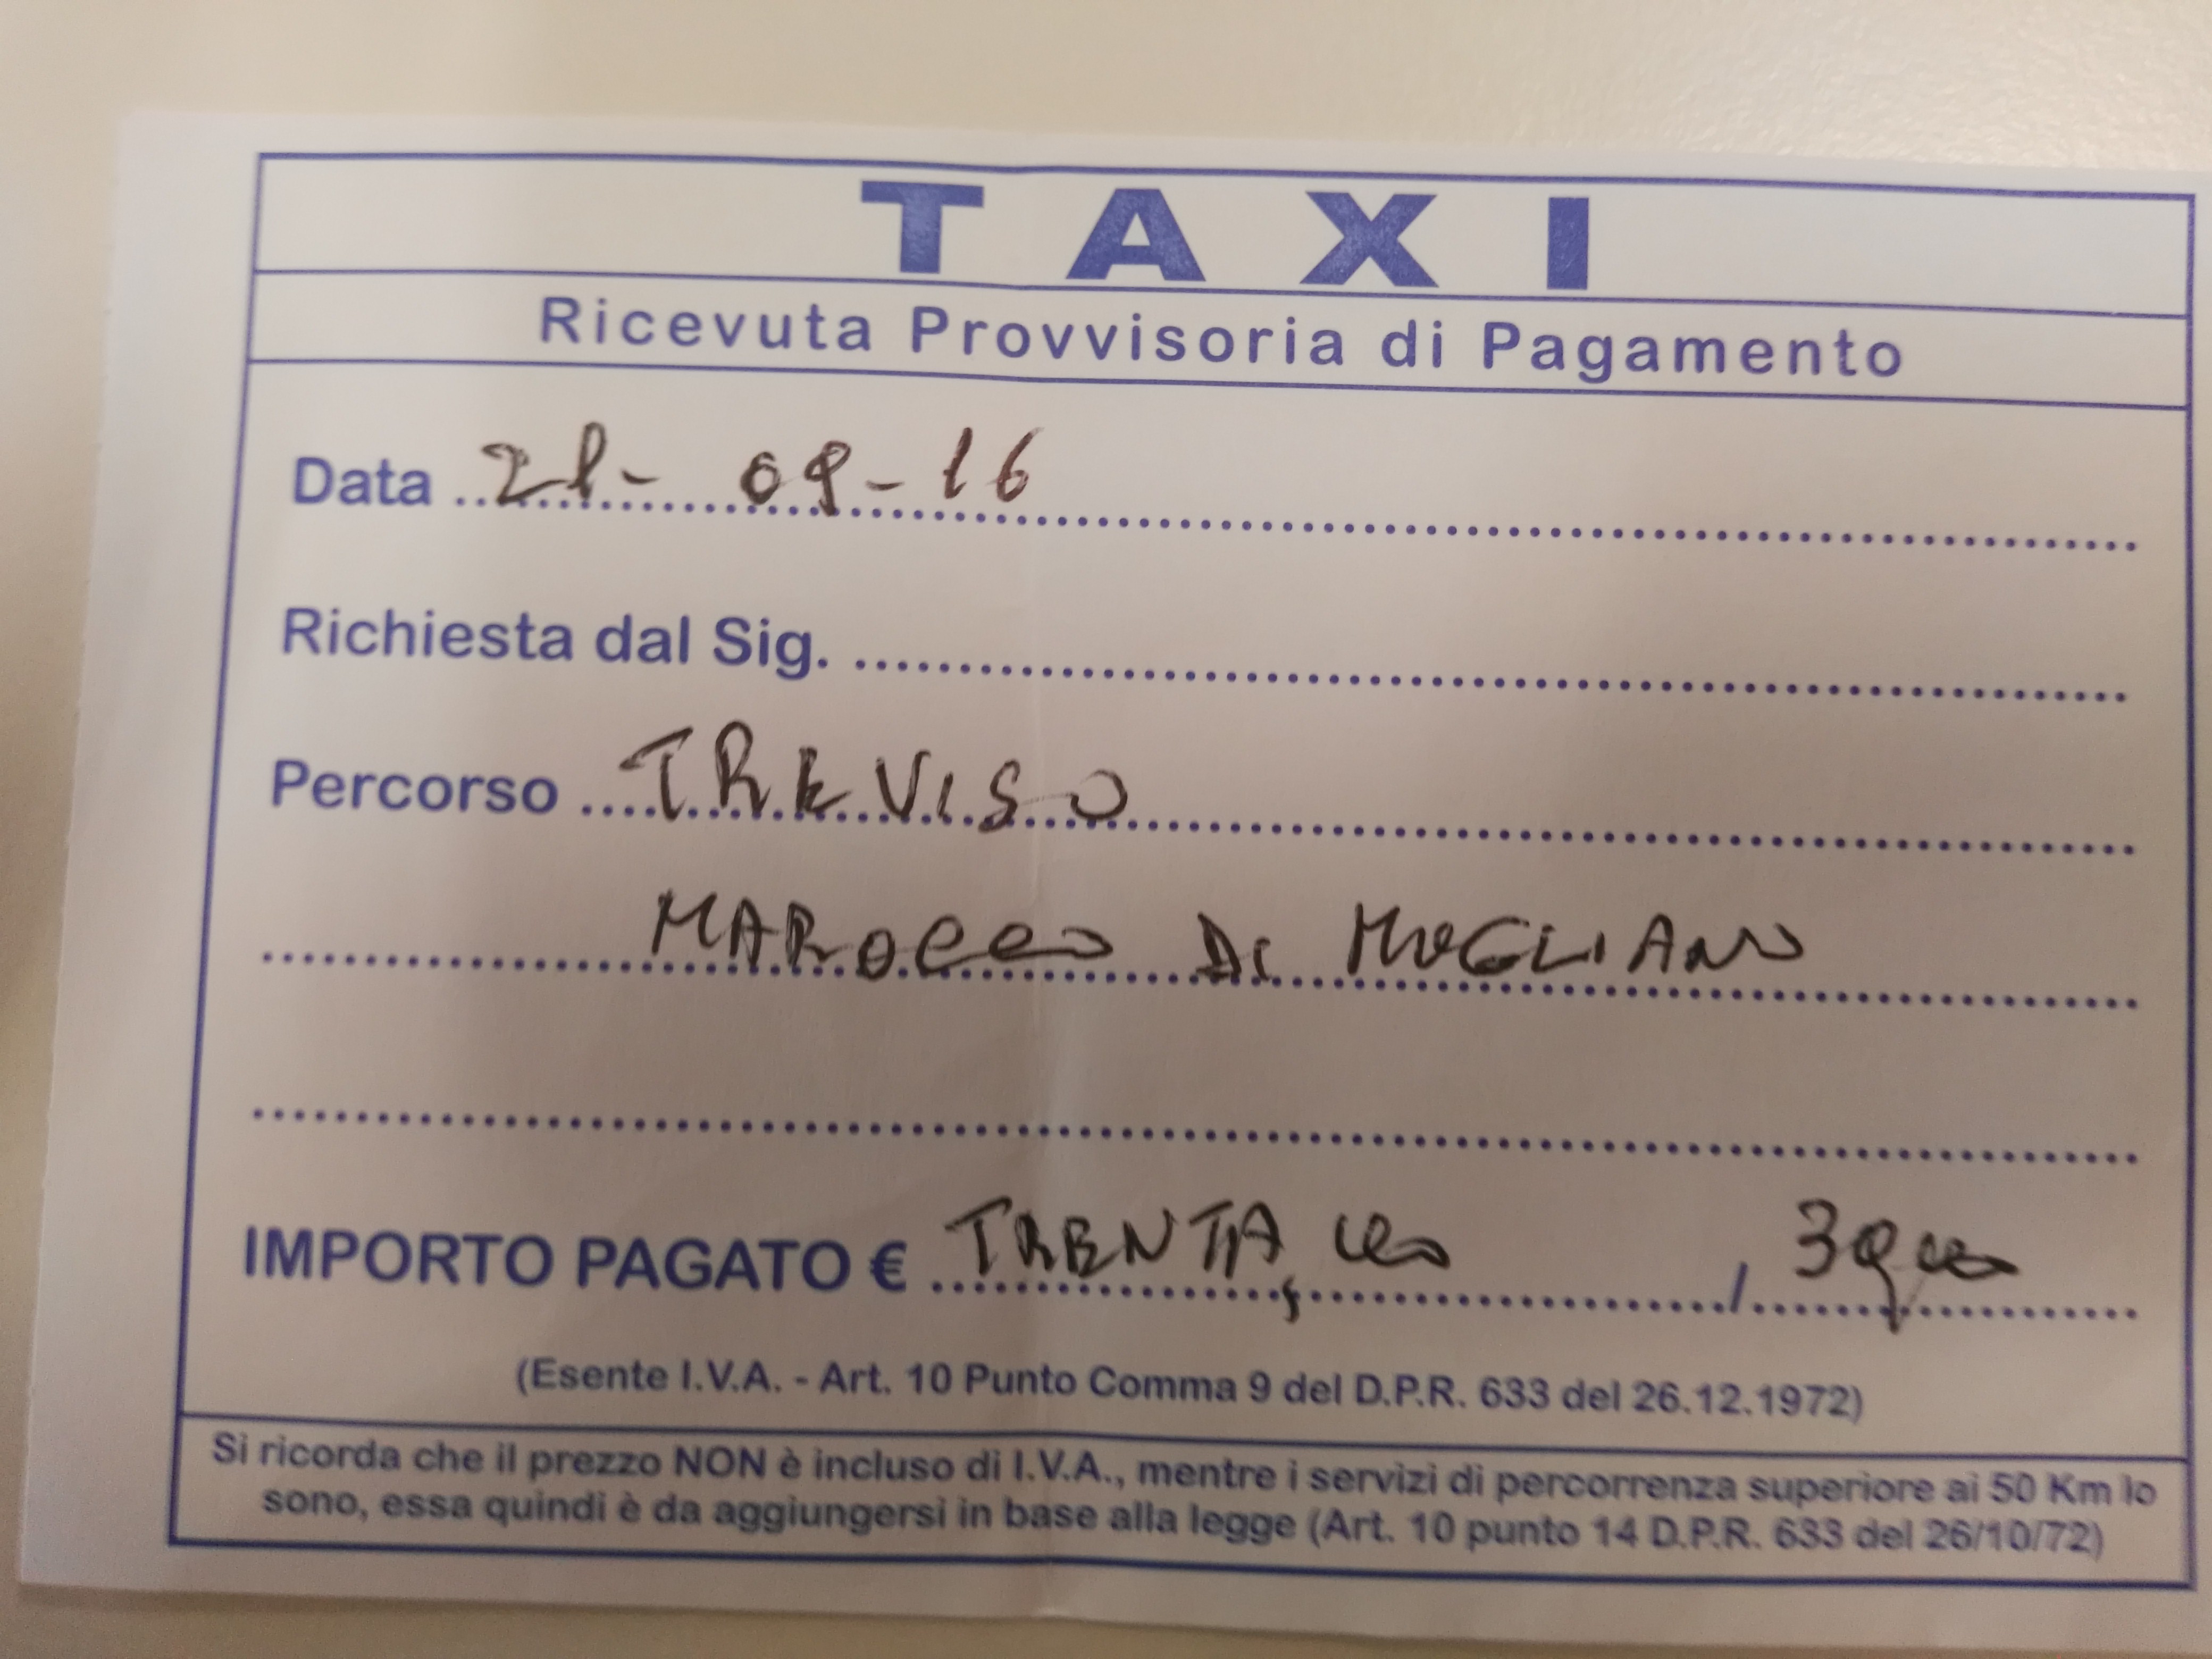 TAXI
Ricevuta Provvisoria di Pagamento
Data 21- 09-16
Richiesta dal Sig.
Percorso TREVISO
MAROCCO DI MOGLIANO
IMPORTO PAGATO € TRENTA, /
(Esente I.V.A. - Art. 10 Punto Comma 9 del D.P.R. 633 del 26.12.1972)
Si ricorda che il prezzo NON è incluso di I.V.A., mentre i servizi di percorrenza superiore ai 50 Km lo
sono, essa quindi è da aggiungersi in base alla legge (Art. 10 punto 14 D.P.R. 633 del 26/10/72)